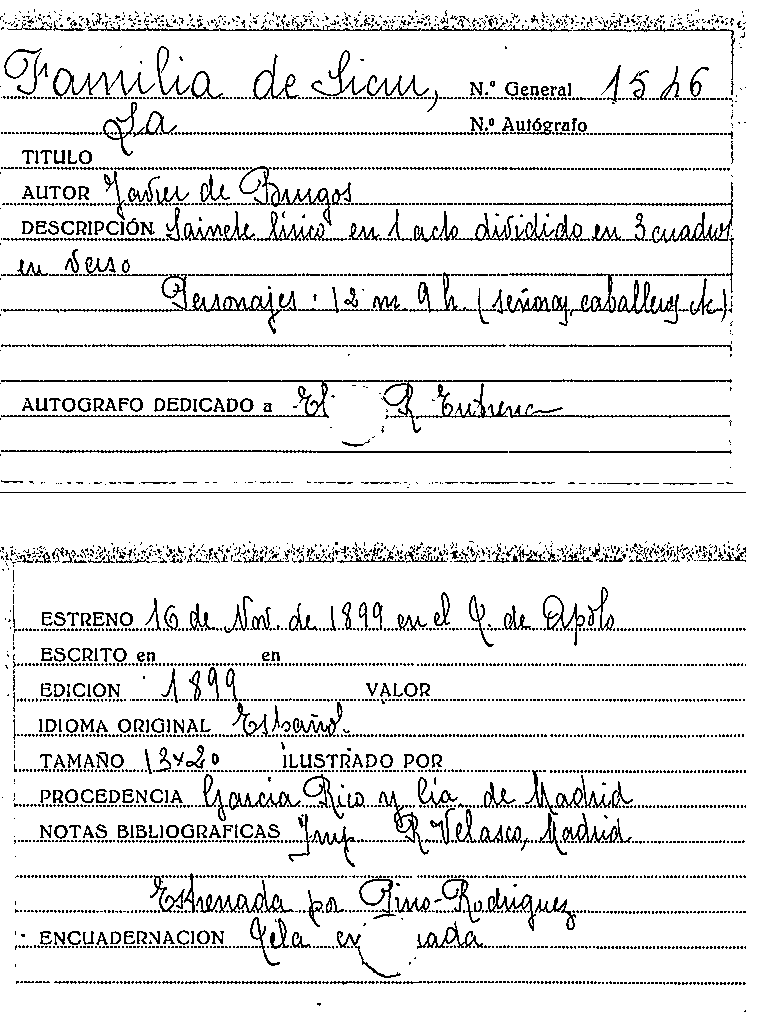 Familia de Sicur, N.º General 1546
La N.º Autógrafo
TITULO
AUTOR Javier de Burgos
DESCRIPCIÓN Sainete lírico en 1 acto dividido en 3 cuadros
en verso
Personajes: 12 m. 9 h. (señoras, caballeros etc)
AUTOGRAFO DEDICADO a El R
ESTRENO 16 de Nov. de 1899 en el T. de Apolo
ESCRITO en en
EDICION 1899 VALOR
IDIOMA ORIGINAL Español.
TAMAÑO 13x20 ILUSTRADO POR
PROCEDENCIA García Rico y Cia. de Madrid
NOTAS BIBLIOGRAFICAS Imp. R. Velasco, Madrid
Estrenada por Pino-Rodriguez
ENCUADERNACION Tela